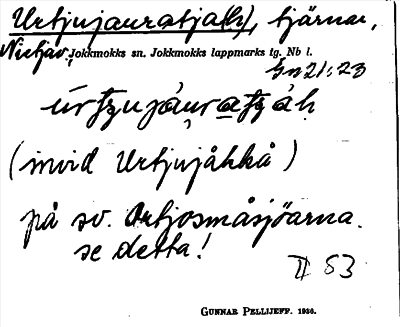 Urtjujauratja(h), tjärnar,
Nietjav, Jokkmokks sn. Jokkmokks lappmarks tg. Nb l.
Gn 21:23
úrtzujáuratzáh
(invid Urtjujåhkå)
på sv. Ortjosmåsjöarna.
se detta!
II 53
GUNNAR PELLIJEFF. 1936.